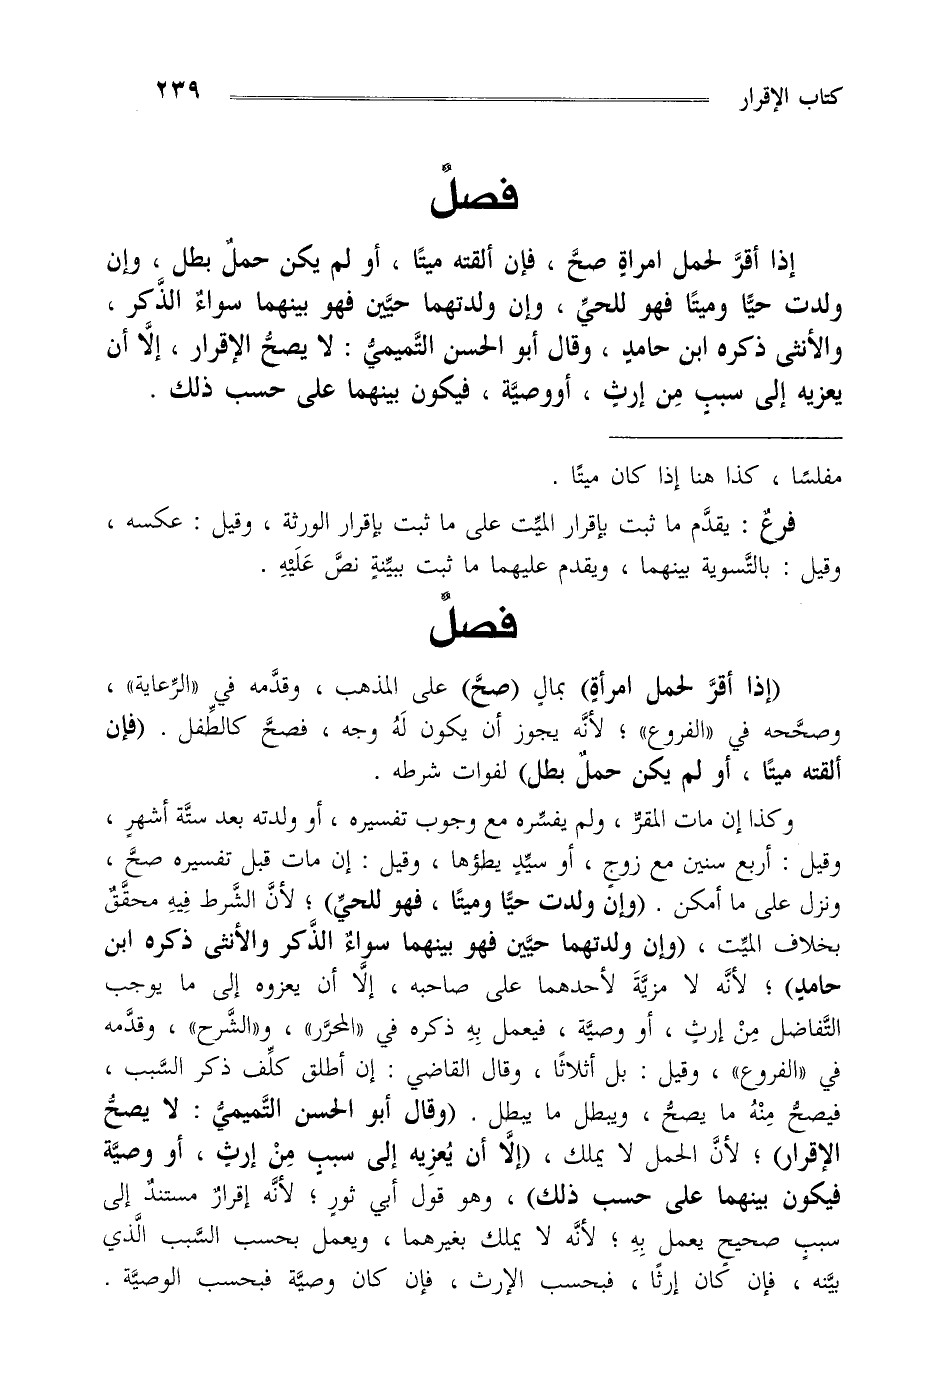 كتاب الإقرار ٢٣٩
فصلٌ
إذا أقرَّ لحمل امراةٍ صحَّ ، فإن ألقته ميتًا ، أو لم يكن حملٌ بطل ، وإن
ولدت حيًّا وميتًا فهو للحيِّ ، وإن ولدتهما حيَّين فهو بينهما سواءٌ الذَّكر ،
والأنثى ذكره ابن حامدٍ ، وقال أبو الحسن التَّميميُّ : لا يصحُّ الإقرار ، إلَّا أن
يعزيه إلى سببٍ مِن إرثٍ ، أووصيَّة ، فيكون بينهما على حسب ذلك .
مفلسًا ، كذا هنا إذا كان ميتًا .
فرعٌ : يقدَّم ما ثبت بإقرار الميِّت على ما ثبت بإقرار الورثة ، وقيل : عكسه ،
وقيل : بالتَّسوية بينهما ، ويقدم عليهما ما ثبت ببيِّنةٍ نصَّ عَلَيْهِ .
فصلٌ
(إذا أقرَّ لحمل امرأةٍ) بمالٍ (صحَّ) على المذهب ، وقدَّمه في «الرِّعاية» ،
وصحَّحه في «الفروع» ؛ لأنَّه يجوز أن يكون لَهُ وجه ، فصحَّ كالطِّفل . (فإن
ألقته ميتًا ، أو لم يكن حملٌ بطل) لفوات شرطه .
وكذا إن مات المقرُّ ، ولم يفسِّره مع وجوب تفسيره ، أو ولدته بعد ستَّة أشهرٍ ،
وقيل : أربع سنين مع زوجٍ ، أو سيِّدٍ يطؤها ، وقيل : إن مات قبل تفسيره صحَّ ،
ونزل على ما أمكن . (وإن ولدت حيًّا وميتًا ، فهو للحيِّ) ؛ لأنَّ الشَّرط فِيهِ محقَّقٌ
بخلاف الميِّت ، (وإن ولدتهما حيَّين فهو بينهما سواءٌ الذَّكر والأنثى ذكره ابن
حامدٍ) ؛ لأنَّه لا مزيَّةَ لأحدهما على صاحبه ، إلَّا أن يعزوه إلى ما يوجب
التَّفاضل مِنْ إرثٍ ، أو وصيَّة ، فيعمل بِهِ ذكره في «المحرَّر» ، و«الشَّرح» ، وقدَّمه
في «الفروع» ، وقيل : بل أثلاثًا ، وقال القاضي : إن أطلق كلِّف ذكر السَّبب ،
فيصحُّ مِنْهُ ما يصحُّ ، ويبطل ما يبطل . (وقال أبو الحسن التَّميميُّ : لا يصحُّ
الإقرار) ؛ لأنَّ الحمل لا يملك ، (إلَّا أن يُعزِيه إلى سببٍ مِنْ إرثٍ ، أو وصيَّة
فيكون بينهما على حسب ذلك) ، وهو قول أبي ثورٍ ؛ لأنَّه إقرارٌ مستندٌ إلى
سببٍ صحيحٍ يعمل بِهِ ؛ لأنَّه لا يملك بغيرهما ، ويعمل بحسب السَّبب الَّذي
بيَّنه ، فإن كان إرثًا ، فبحسب الإرث ، فإن كان وصيَّة فبحسب الوصيَّة .